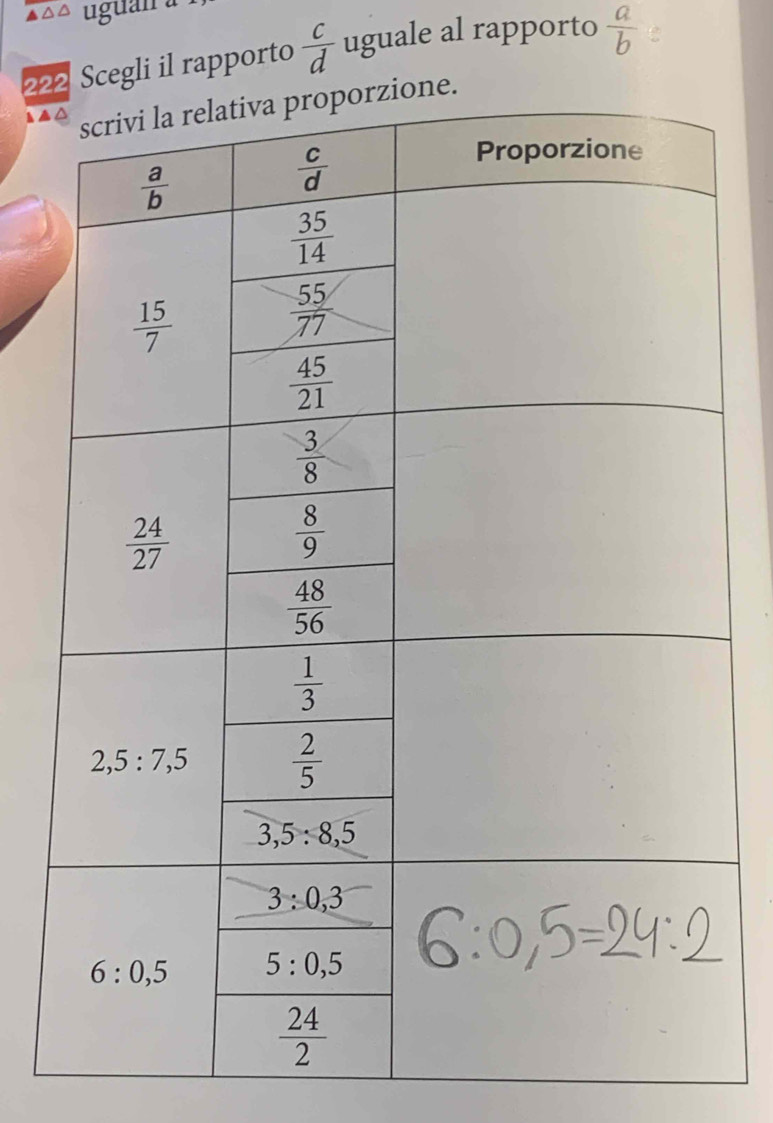 uguali a
222 Scegli il rapporto c/d uguale al rapporto a/b e
scrivi la relativa proporzione.
a/b c/d Proporzione
15/7
35/14
55/77
45/21
24/27
3/8
8/9
48/56
2,5 : 7,5
1/3
2/5
3,5 : 8,5
6 : 0,5
3 : 0,3
5 : 0,5
24/2
6:0,5=24:2